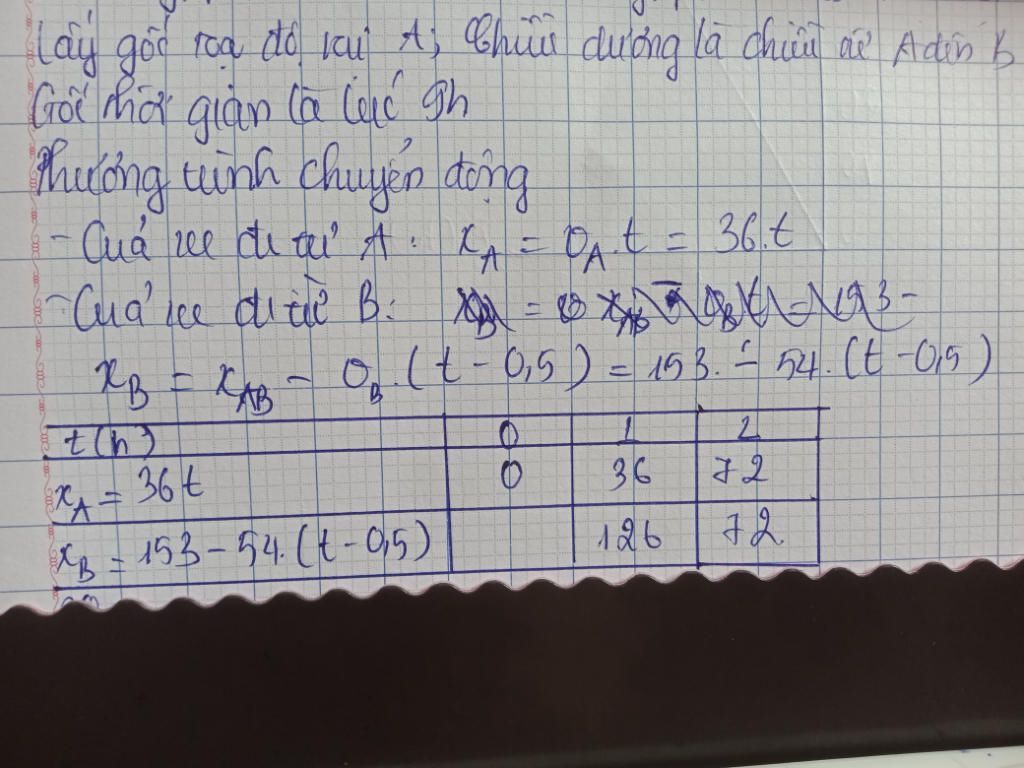 Lấy gốc toạ độ tại A, Chiều dương là chiều từ A đến B
Gốc thời gian là lúc 9h
Phương trình chuyển động
- Của xe đi từ A: x_A = v_A.t = 36.t
- Của xe đi từ B:
x_B = x_AB - v_B.(t - 0,5) = 153 - 54.(t - 0,5)
t(h) 0 1 2
x_A = 36t 0 36 72
x_B = 153 - 54.(t - 0,5) 126 72